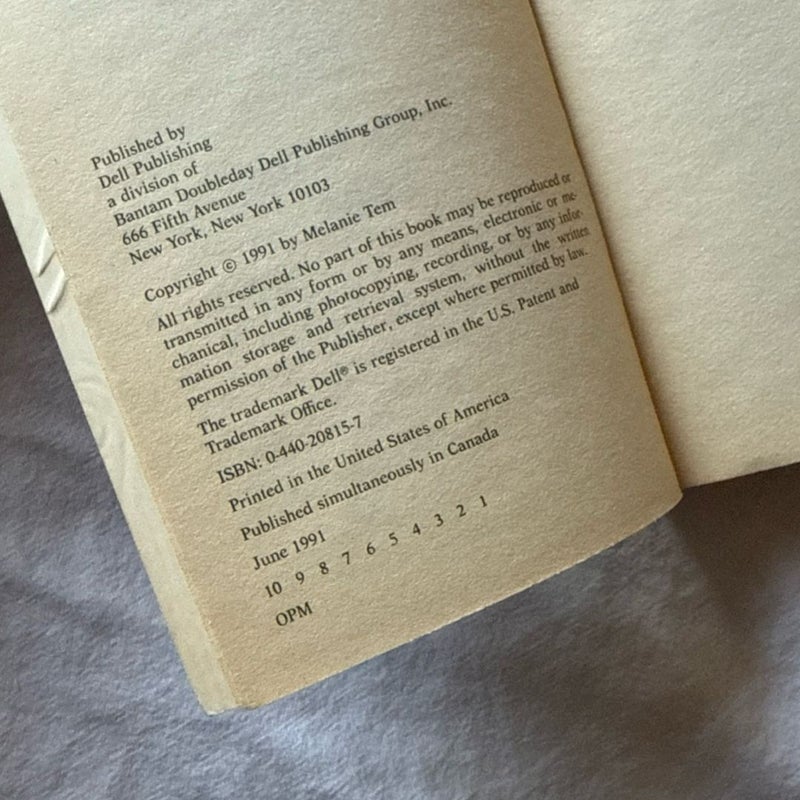 Published by
Dell Publishing
a division of
Bantam Doubleday Dell Publishing Group, Inc.
666 Fifth Avenue
New York, New York 10103
Copyright © 1991 by Melanie Tem
All rights reserved. No part of this book may be reproduced or
transmitted in any form or by any means, electronic or me-
chanical, including photocopying, recording, or by any infor-
mation storage and retrieval system, without the written
permission of the Publisher, except where permitted by law.
The trademark Dell® is registered in the U.S. Patent and
Trademark Office.
ISBN: 0-440-20815-7
Printed in the United States of America
Published simultaneously in Canada
June 1991
10 9 8 7 6 5 4 3 2 1
OPM